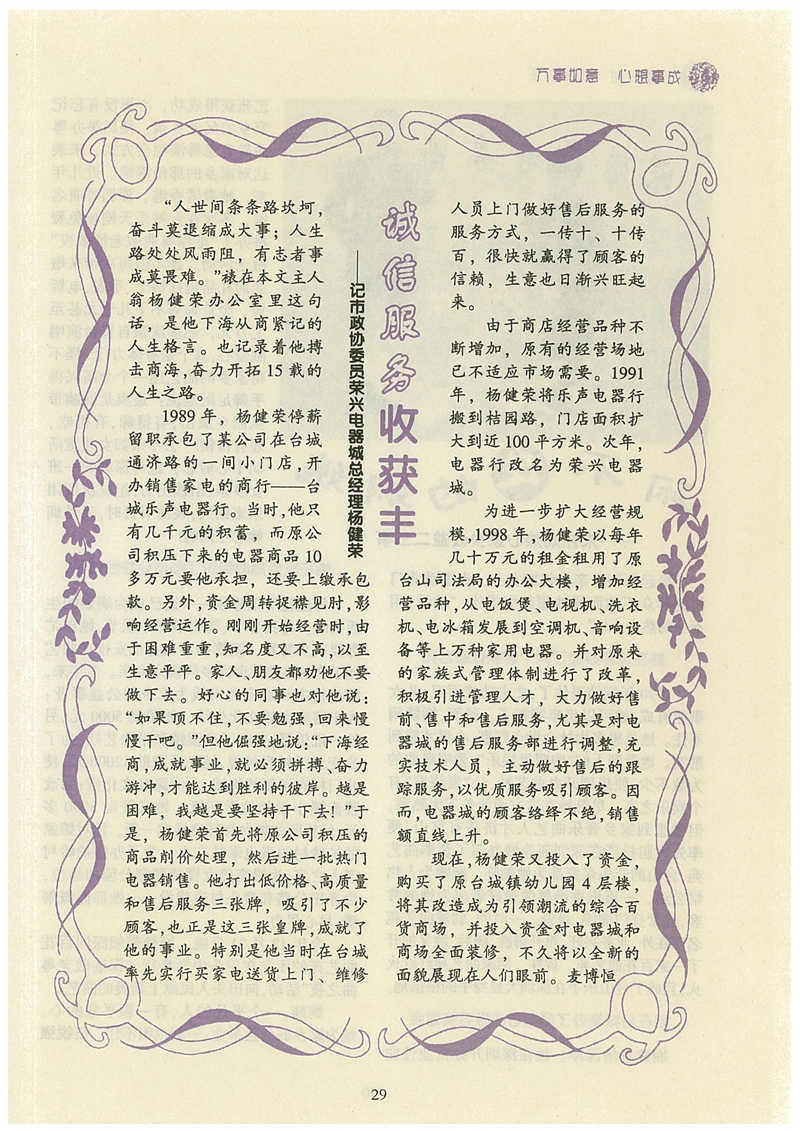 万事如意 心想事成
诚信服务收获丰
——记市政协委员荣兴电器城总经理杨健荣
“人世间条条路坎坷，
奋斗莫退缩成大事；人生
路处处风雨阻，有志者事
成莫畏难。”裱在本文主人
翁杨健荣办公室里这句
话，是他下海从商紧记的
人生格言。也记录着他搏
击商海,奋力开拓 15 载的
人生之路。
1989 年，杨健荣停薪
留职承包了某公司在台城
通济路的一间小门店,开
办销售家电的商行——台
城乐声电器行。当时,他只
有几千元的积蓄，而原公
司积压下来的电器商品 10
多万元要他承担，还要上缴承包
款。另外,资金周转捉襟见肘,影
响经营运作。刚刚开始经营时,由
于困难重重,知名度又不高,以至
生意平平。家人、朋友都劝他不要
做下去。好心的同事也对他说：
“如果顶不住,不要勉强,回来慢
慢干吧。”但他倔强地说:“下海经
商,成就事业,就必须拼搏、奋力
游冲,才能达到胜利的彼岸。越是
困难，我越是要坚持干下去！”于
是，杨健荣首先将原公司积压的
商品削价处理，然后进一批热门
电器销售。他打出低价格、高质量
和售后服务三张牌，吸引了不少
顾客,也正是这三张皇牌,成就了
他的事业。特别是他当时在台城
率先实行买家电送货上门、维修
人员上门做好售后服务的
服务方式，一传十、十传
百，很快就赢得了顾客的
信赖，生意也日渐兴旺起
来。
由于商店经营品种不
断增加，原有的经营场地
已不适应市场需要。1991
年，杨健荣将乐声电器行
搬到桔园路，门店面积扩
大到近 100 平方米。次年，
电器行改名为荣兴电器
城。
为进一步扩大经营规
模,1998 年,杨健荣以每年
几十万元的租金租用了原
台山司法局的办公大楼，增加经
营品种,从电饭煲、电视机、洗衣
机、电冰箱发展到空调机、音响设
备等上万种家用电器。并对原来
的家族式管理体制进行了改革，
积极引进管理人才，大力做好售
前、售中和售后服务,尤其是对电
器城的售后服务部进行调整,充
实技术人员，主动做好售后的跟
踪服务,以优质服务吸引顾客。因
而,电器城的顾客络绎不绝,销售
额直线上升。
现在,杨健荣又投入了资金，
购买了原台城镇幼儿园 4 层楼，
将其改造成为引领潮流的综合百
货商场，并投入资金对电器城和
商场全面装修，不久将以全新的
面貌展现在人们眼前。麦博恒
29